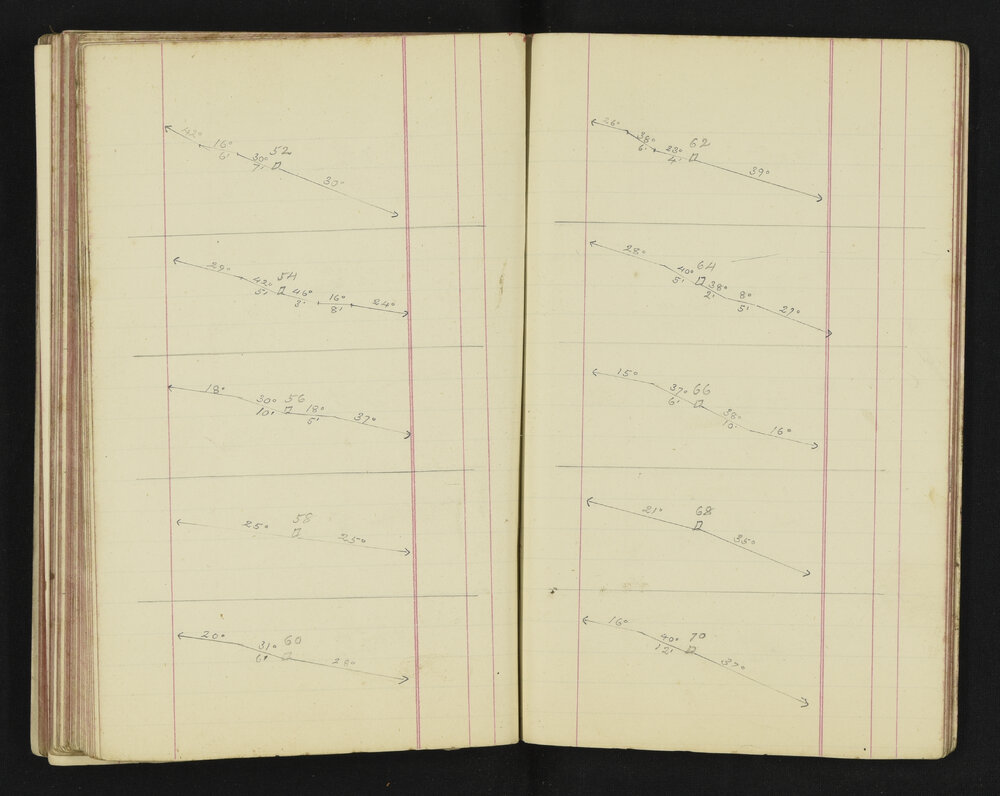 42°
16° 52
6' 30°
7'
30°
29°
42° 54
5' 46° 16° 24°
3' 8'
18°
30° 56
10' 18° 37°
5'
58
25° 25°
20°
31° 60
6' 28°
26°
38° 62
6' 28°
4' 39°
28°
40° 64
5' 38° 8°
2' 5' 27°
15°
37° 66
6' 38°
10' 16°
21° 68
35°
16°
40° 70
12' 37°